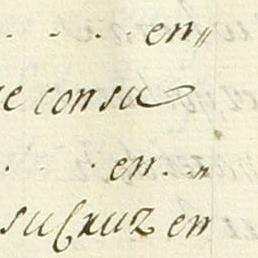 . . . . en,,
e consu
. . . en. ,,
su Cruz en